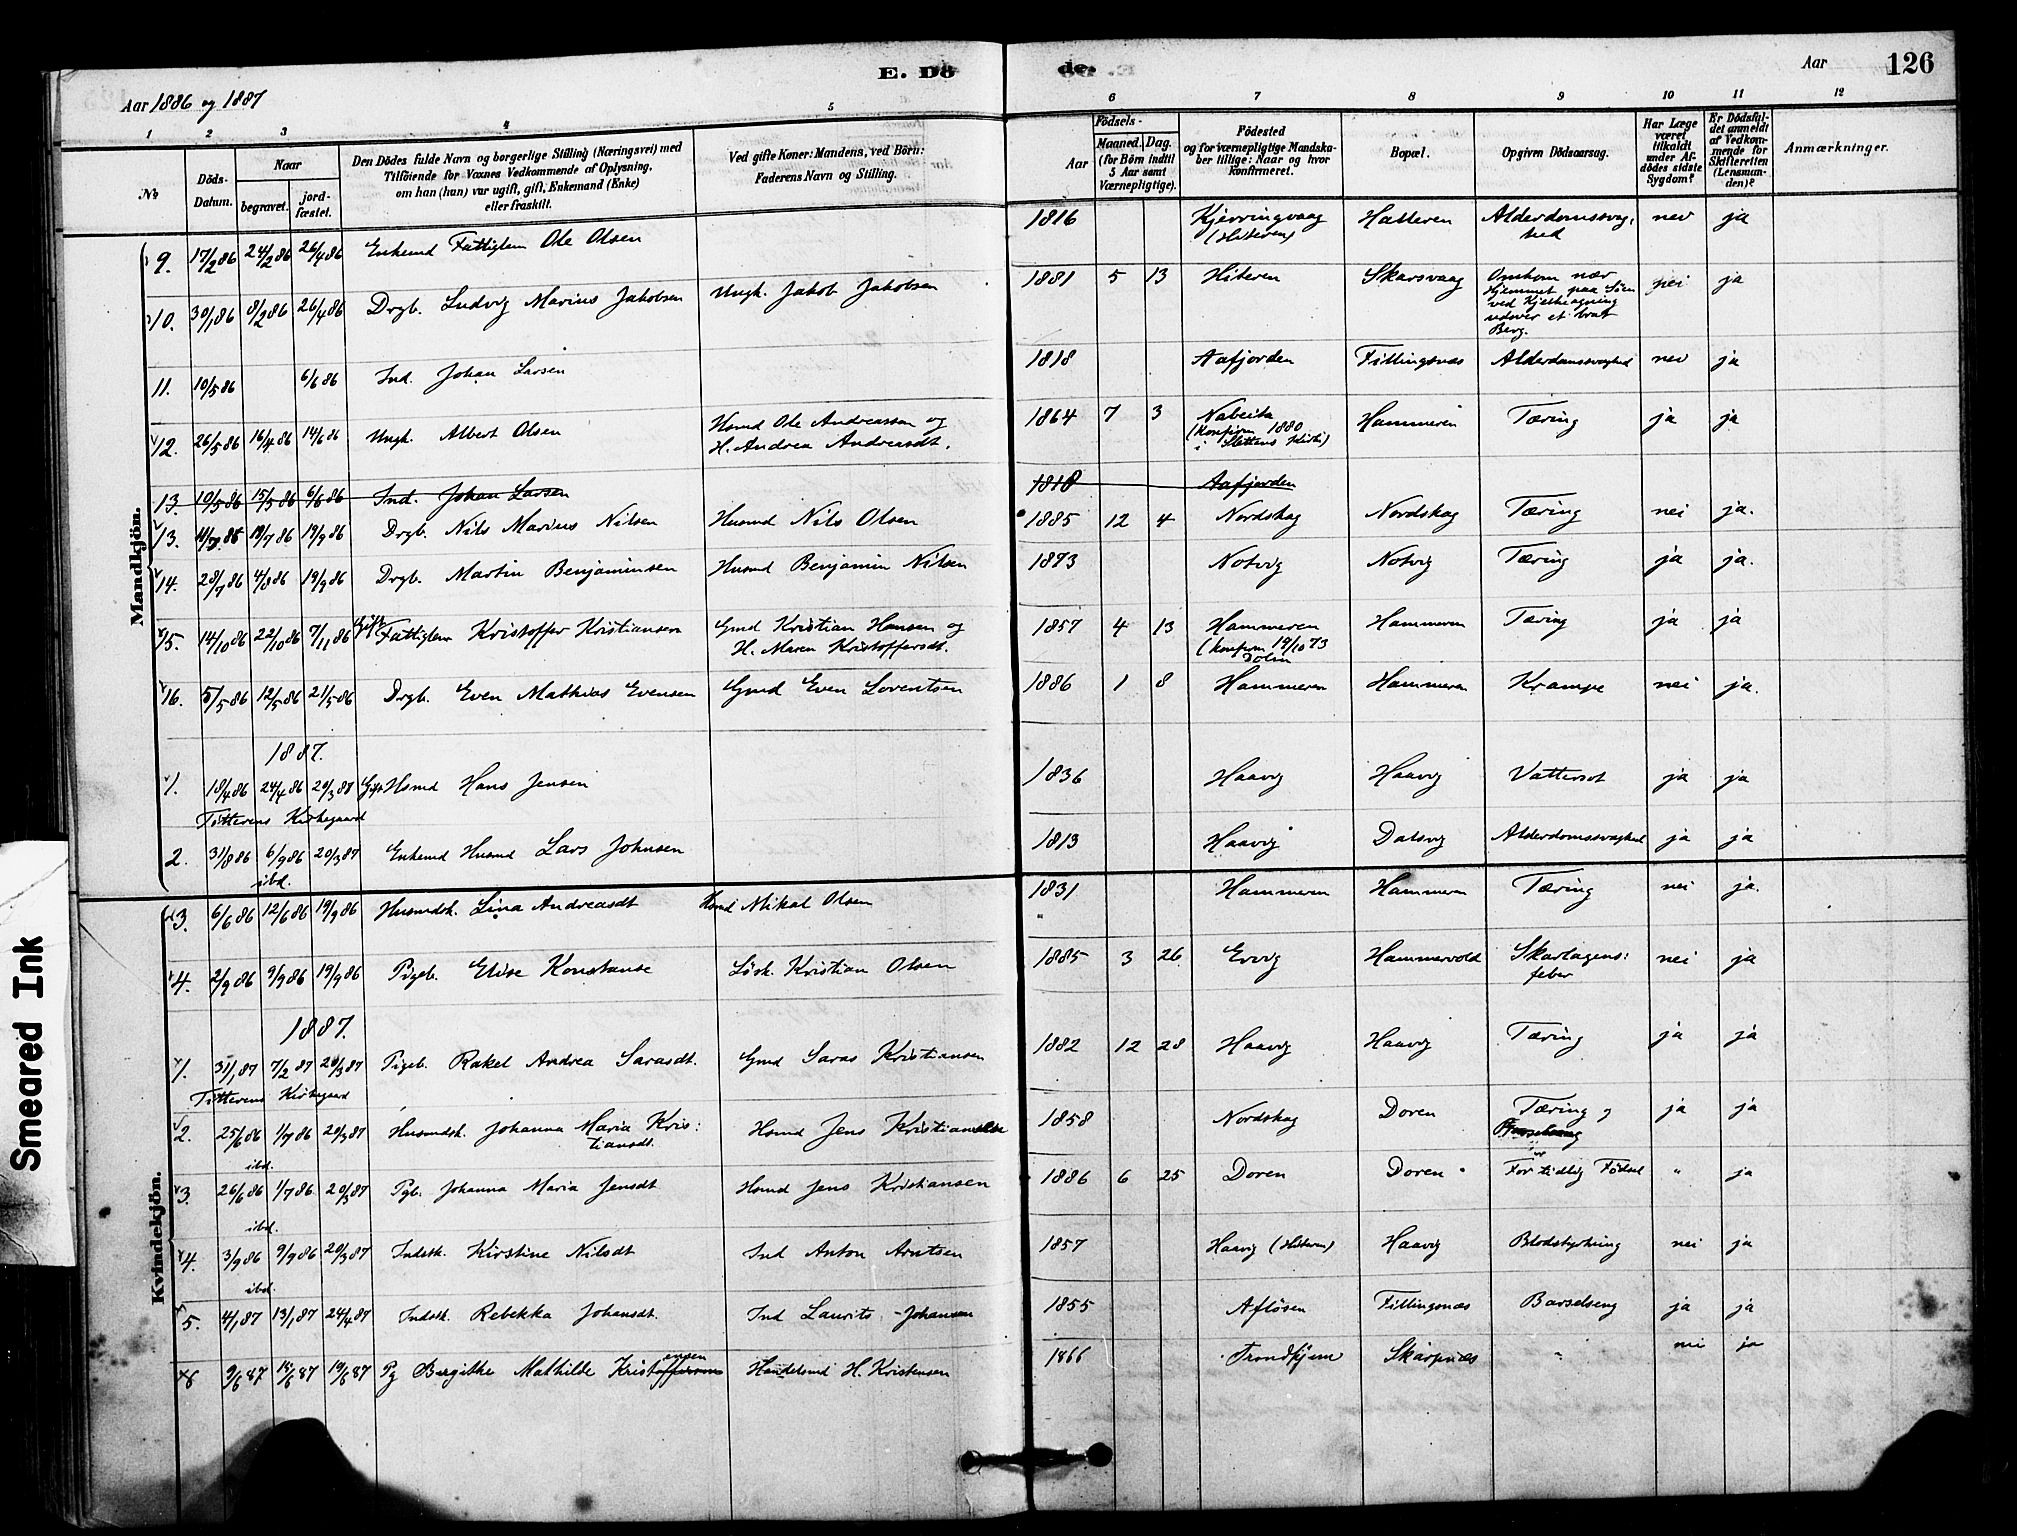 E. Dö de.
126
Aar 1886 og 1887
Aar
1 2 3 4 5 6 7 8 9 10 11 12
No
Döds-Datum.
Naar
begravet.
jordfæstet.
Den Dödes fulde Navn og borgerlige Stilling (Næringsvei) med
Tilföiende for Voxnes Vedkommende af Oplysning,
om han (hun) var ugift, gift, Enkemand (Enke)
eller fraskilt.
Ved gifte Koner: Mandens, ved Börn:
Faderens Navn og Stilling.
Födsels-
Aar
Maaned. Dag.
(for Börn indtil
5 Aar samt
Værnepligtige).
Födested
og for værnepligtige Mandskaber tillige: Naar og hvor
konfirmeret.
Bopæl.
Opgiven Dödsaarsag.
Har Læge
været
tilkaldt
under Afdödes sidste
Sygdom?
Er Dödsfaldet anmeldt
af Vedkommende for
Skifteretten
(Lensmanden)?
Anmærkninger.
Mandkjön.
9. 17/2 86 24/2 86 26/4 86 Enkemd Fattiglem Ole Olsen 1816 Kjerringvaag (Hitteren) Hatteren Alderdomssvaghed nei ja
10. 30/1 86 8/2 86 26/4 86 Drgb. Ludvig Marius Jakobsen Ungk. Jakob Jakobsen 1881 5 13 Hiteren Skarsvaag Omkom nær
Hjemmet paa Söen
ved Kjælkeagning
udover et brat
Berg. nei ja
11. 10/5 86 6/6 86 Ind. Johan Larsen 1818 Aafjorden Fillingsnæs Alderdomssvaghed nei ja
12. 26/5 86 16/4 86 14/6 86 Ungk. Albert Olsen Hsmd Ole Andreassen og
H. Andrea Andreasdt. 1864 7 3 Nabeita
(konfirm 1880
i Slettens Kirke) Hammeren Tæring ja ja
13. 10/5 86 15/5 86 6/6 86 Ind. Johan Larsen 1818 Aafjorden
13. 11/7 86 18/7 86 19/9 86 Drgb. Nils Marius Nilsen Husmd Nils Olsen 1885 12 4 Nordskag Nordskag Tæring nei ja.
14. 28/7 86 4/8 86 19/9 86 Drgb. Martin Benjaminsen Husmd Benjamin Nilsen 1873 Notvig Notvig Tæring ja ja.
15. 14/10 86 22/10 86 7/11 86 Gift Fattiglem Kristoffer Kristiansen Gmd Kristian Hansen og
H. Maren Kristoffersdt. 1857 4 13 Hammeren
(konfirm 19/10 73
Dolm Hammeren Tæring ja ja
16. 5/5 86 12/5 86 21/5 86 Drgb. Even Mathias Evensen Gmd Even Lorentsen 1886 1 8 Hammeren Hammeren Krampe nei ja.
1887.
1. 18/4 86 24/4 86 20/3 87 Gift Hsmd Hans Jensen 1836 Haavig Haavig Vattersot ja ja
Titterens Kirkegaard
2. 31/8 86 6/9 86 20/3 87 Enkemd Husmd Lars Johnsen 1813 Haavig Dalsvig Alderdomssvaghed ja ja
ibd.
Kvindekjön.
3. 6/6 86 12/6 86 19/9 86 Husmdsk. Lina Andreasdt Hsmd Mikal Olsen 1831 Hammeren Hammeren Tæring nei ja.
4. 2/9 86 9/9 86 19/9 86 Pigeb. Elise Konstanse Lösk. Kristian Olsen 1885 3 26 Evvig Hammervold Skarlagens:
feber nei ja
1887.
1. 31/1 87 7/2 87 20/3 87 Pigeb. Rakel Andrea Sarasdt. Gmd Saras Kristiansen 1882 12 28 Haavig Haavig Tæring ja ja
Titterens Kirkegaard
2. 25/6 86 1/7 86 20/3 87 Husmdsk. Johanna Maria Kris:
tiansdt. Hsmd Jens Kristiansen 1858 Nordskag Doren Tæring ja ja
ibd.
3. 26/6 86 1/7 86 20/3 87 Pgb. Johanna Maria Jensdt Hsmd Jens Kristiansen 1886 6 25 Doren Doren For tidlig Födsel " ja
ibd.
4. 3/9 86 9/9 86 20/3 87 Indstk. Kirstine Nilsdt Ind Anton Arntsen 1857 Haavig (Hiteren) Haavig Blodstyrtning nei ja
ibd.
5. 4/1 87 13/1 87 24/4 87 Indstk. Rebekka Johansdt. Ind Laurits Johansen 1855 Aflösen Fillingsnæs Barselseng ja ja
9/6 87 18/6 87 19/6 87 Pg Birgithe Mathilde Kristensen Handelsmd H. Kristensen 1866 Trondhjem Skarpnæs " nei ja
Smeared Ink